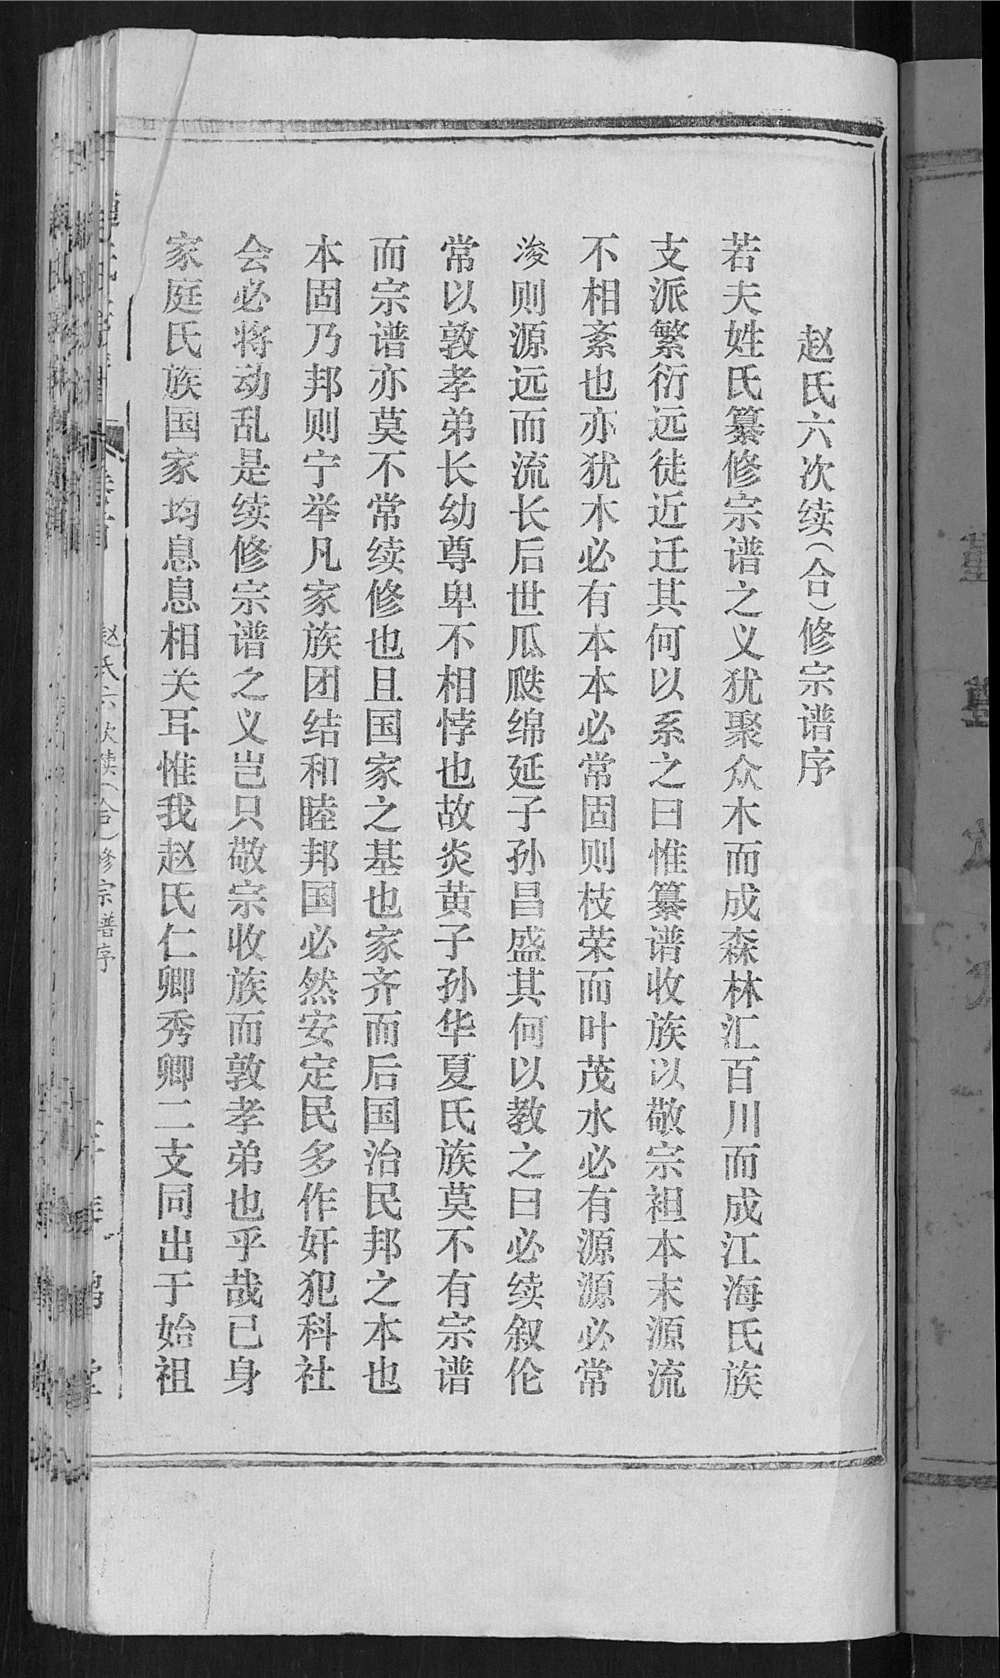 赵氏六次续(合)修宗谱序
若夫姓氏纂修宗谱之义犹聚众木而成森林汇百川而成江海氏族
支派繁衍远徒近迁其何以系之曰惟纂谱收族以敬宗祖本末源流
不相紊也亦犹木必有本本必常固则枝荣而叶茂水必有源源必常
浚则源远而流长后世瓜瓞绵延子孙昌盛其何以教之曰必续叙伦
常以敦孝弟长幼尊卑不相悖也故炎黄子孙华夏氏族莫不有宗谱
而宗谱亦莫不常续修也且国家之基也家齐而后国治民邦之本也
本固乃邦则宁举凡家族团结和睦邦国必然安定民多作奸犯科社
会必将动乱是续修宗谱之义岂只敬宗收族而敦孝弟也乎哉已身
家庭氏族国家均息息相关耳惟我赵氏仁卿秀卿二支同出于始祖
赵氏六次续(合)修宗谱序